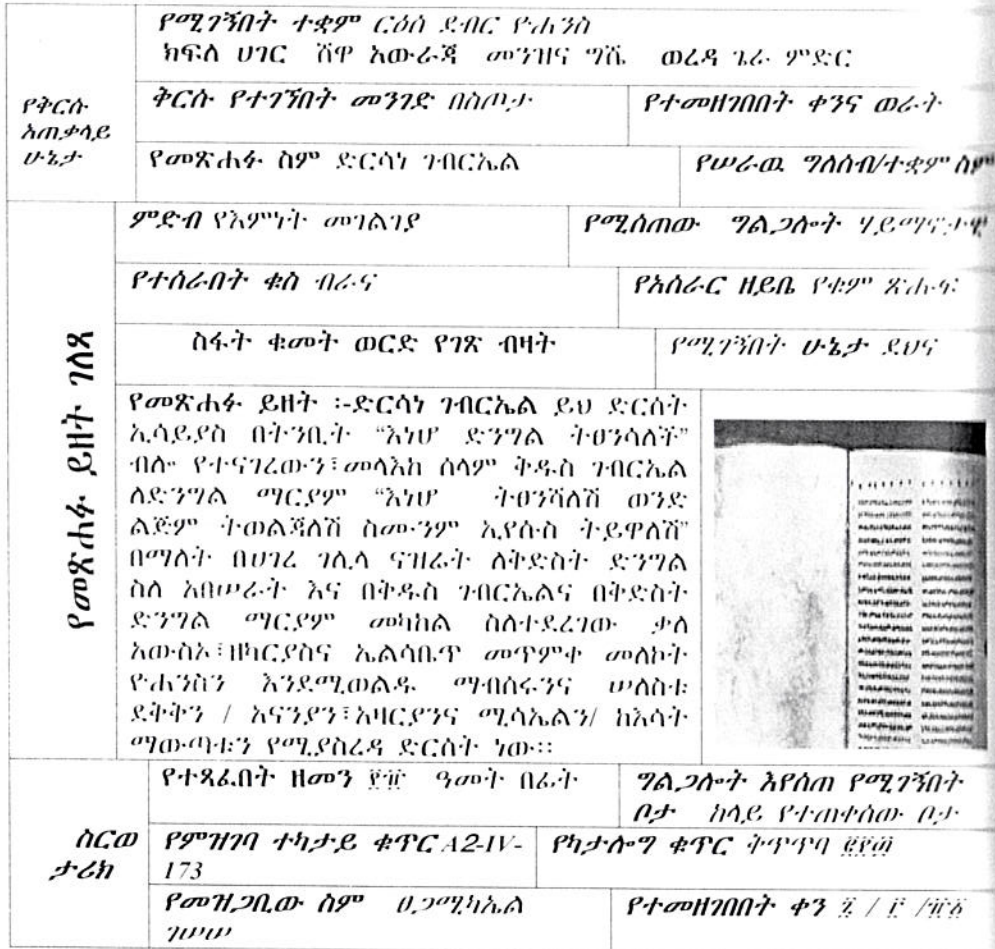 የሚገኝበት ተቋም ርዕሰ ደብር ዮሐንስ
ክፍለ ሀገር ሸዋ አውራጃ መንዝና ግሼ ወረዳ ጌራ ምድር
የቅርሱ
አጠቃላይ
ሁኔታ
ቅርሱ የተገኘበት መንገድ በስጦታ
የተመዘገበበት ቀንና ወራት
የመጽሐፉ ስም ድርሳነ ገብርኤል
የሠራዉ ግለሰብ/ተቋም ስም
የመጽሐፉ ይዘት ገለጻ
ምድብ የእምነት መገልገያ
የሚሰጠው ግልጋሎት ሃይማኖታዊ
የተሰራበት ቁስ ብራና
የአሰራር ዘይቤ የቁም ጽሑፍ
ስፋት ቁመት ወርድ የገጽ ብዛት
የሚገኝበት ሁኔታ ደህና
የመጽሐፉ ይዘት ፡-ድርሳነ ገብርኤል ይህ ድርሰት
ኢሳይያስ በትንቢት “እነሆ ድንግል ትፀንሳለች”
ብሎ የተናገረውን፣መላእከ ሰላም ቅዱስ ገብርኤል
ለድንግል ማርያም “እነሆ ትፀንሻለሽ ወንድ
ልጅም ትወልጃለሽ ስሙንም ኢየሱስ ትይዋለሽ”
በማለት በሀገረ ገሊላ ናዝሬት ለቅድስት ድንግል
ስለ አበሠራት እና በቅዱስ ገብርኤልና በቅድስት
ድንግል ማርያም መካከል ስለተደረገው ቃለ
አውስኦ፣ዘካርያስና ኤልሳቤጥ መጥምቀ መለኮት
ዮሐንስን እንደሚወልዱ ማብሰሩንና ሠለስቱ
ደቅቅን / አናንያን፣አዛርያንና ሚሳኤልን/ ከእሳት
ማውጣቱን የሚያስረዳ ድርሰት ነው፡፡
ስርወ
ታሪክ
የተጻፈበት ዘመን ዓመት በፊት
ግልጋሎት እየሰጠ የሚገኝበት
ቦታ ከላይ የተጠቀሰው ቦታ
የምዝገባ ተካታይ ቁጥር A2-IV-
173
የካታሎግ ቁጥር ቅጥጥባ
የመዝጋቢው ስም ፀጋሚካኤል
የተመዘገበበት ቀን